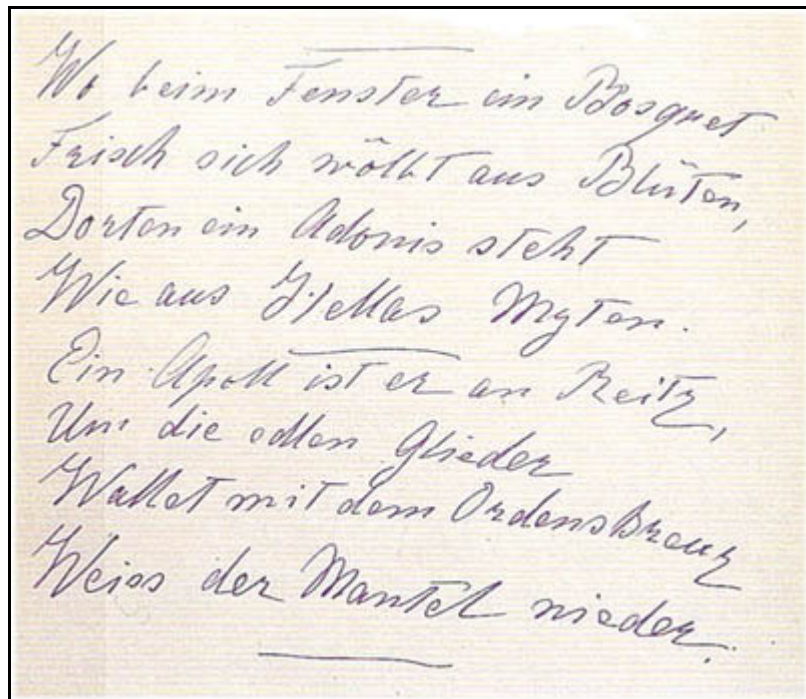 Wo beim Fenster ein Bosquet
Frisch sich wölbt aus Blüten,
Dorten ein Adonis steht
Wie aus Hellas Myten.
Ein Apoll ist er an Reitz,
Um die edlen Glieder
Wallet mit dem Ordenskreuz
Weiss der Mantel nieder.